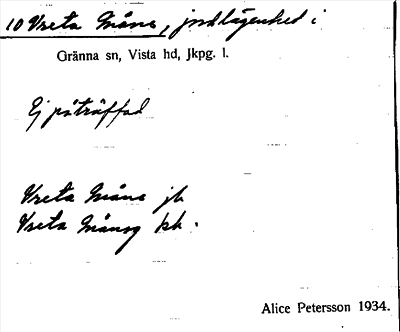 10 Vreta Måne, jordlägenhet i
Gränna sn, Vista hd, Jkpg. l.
Ej påträffad
Vreta Måne jb
Vreta Månsg kb.
Alice Petersson 1934.